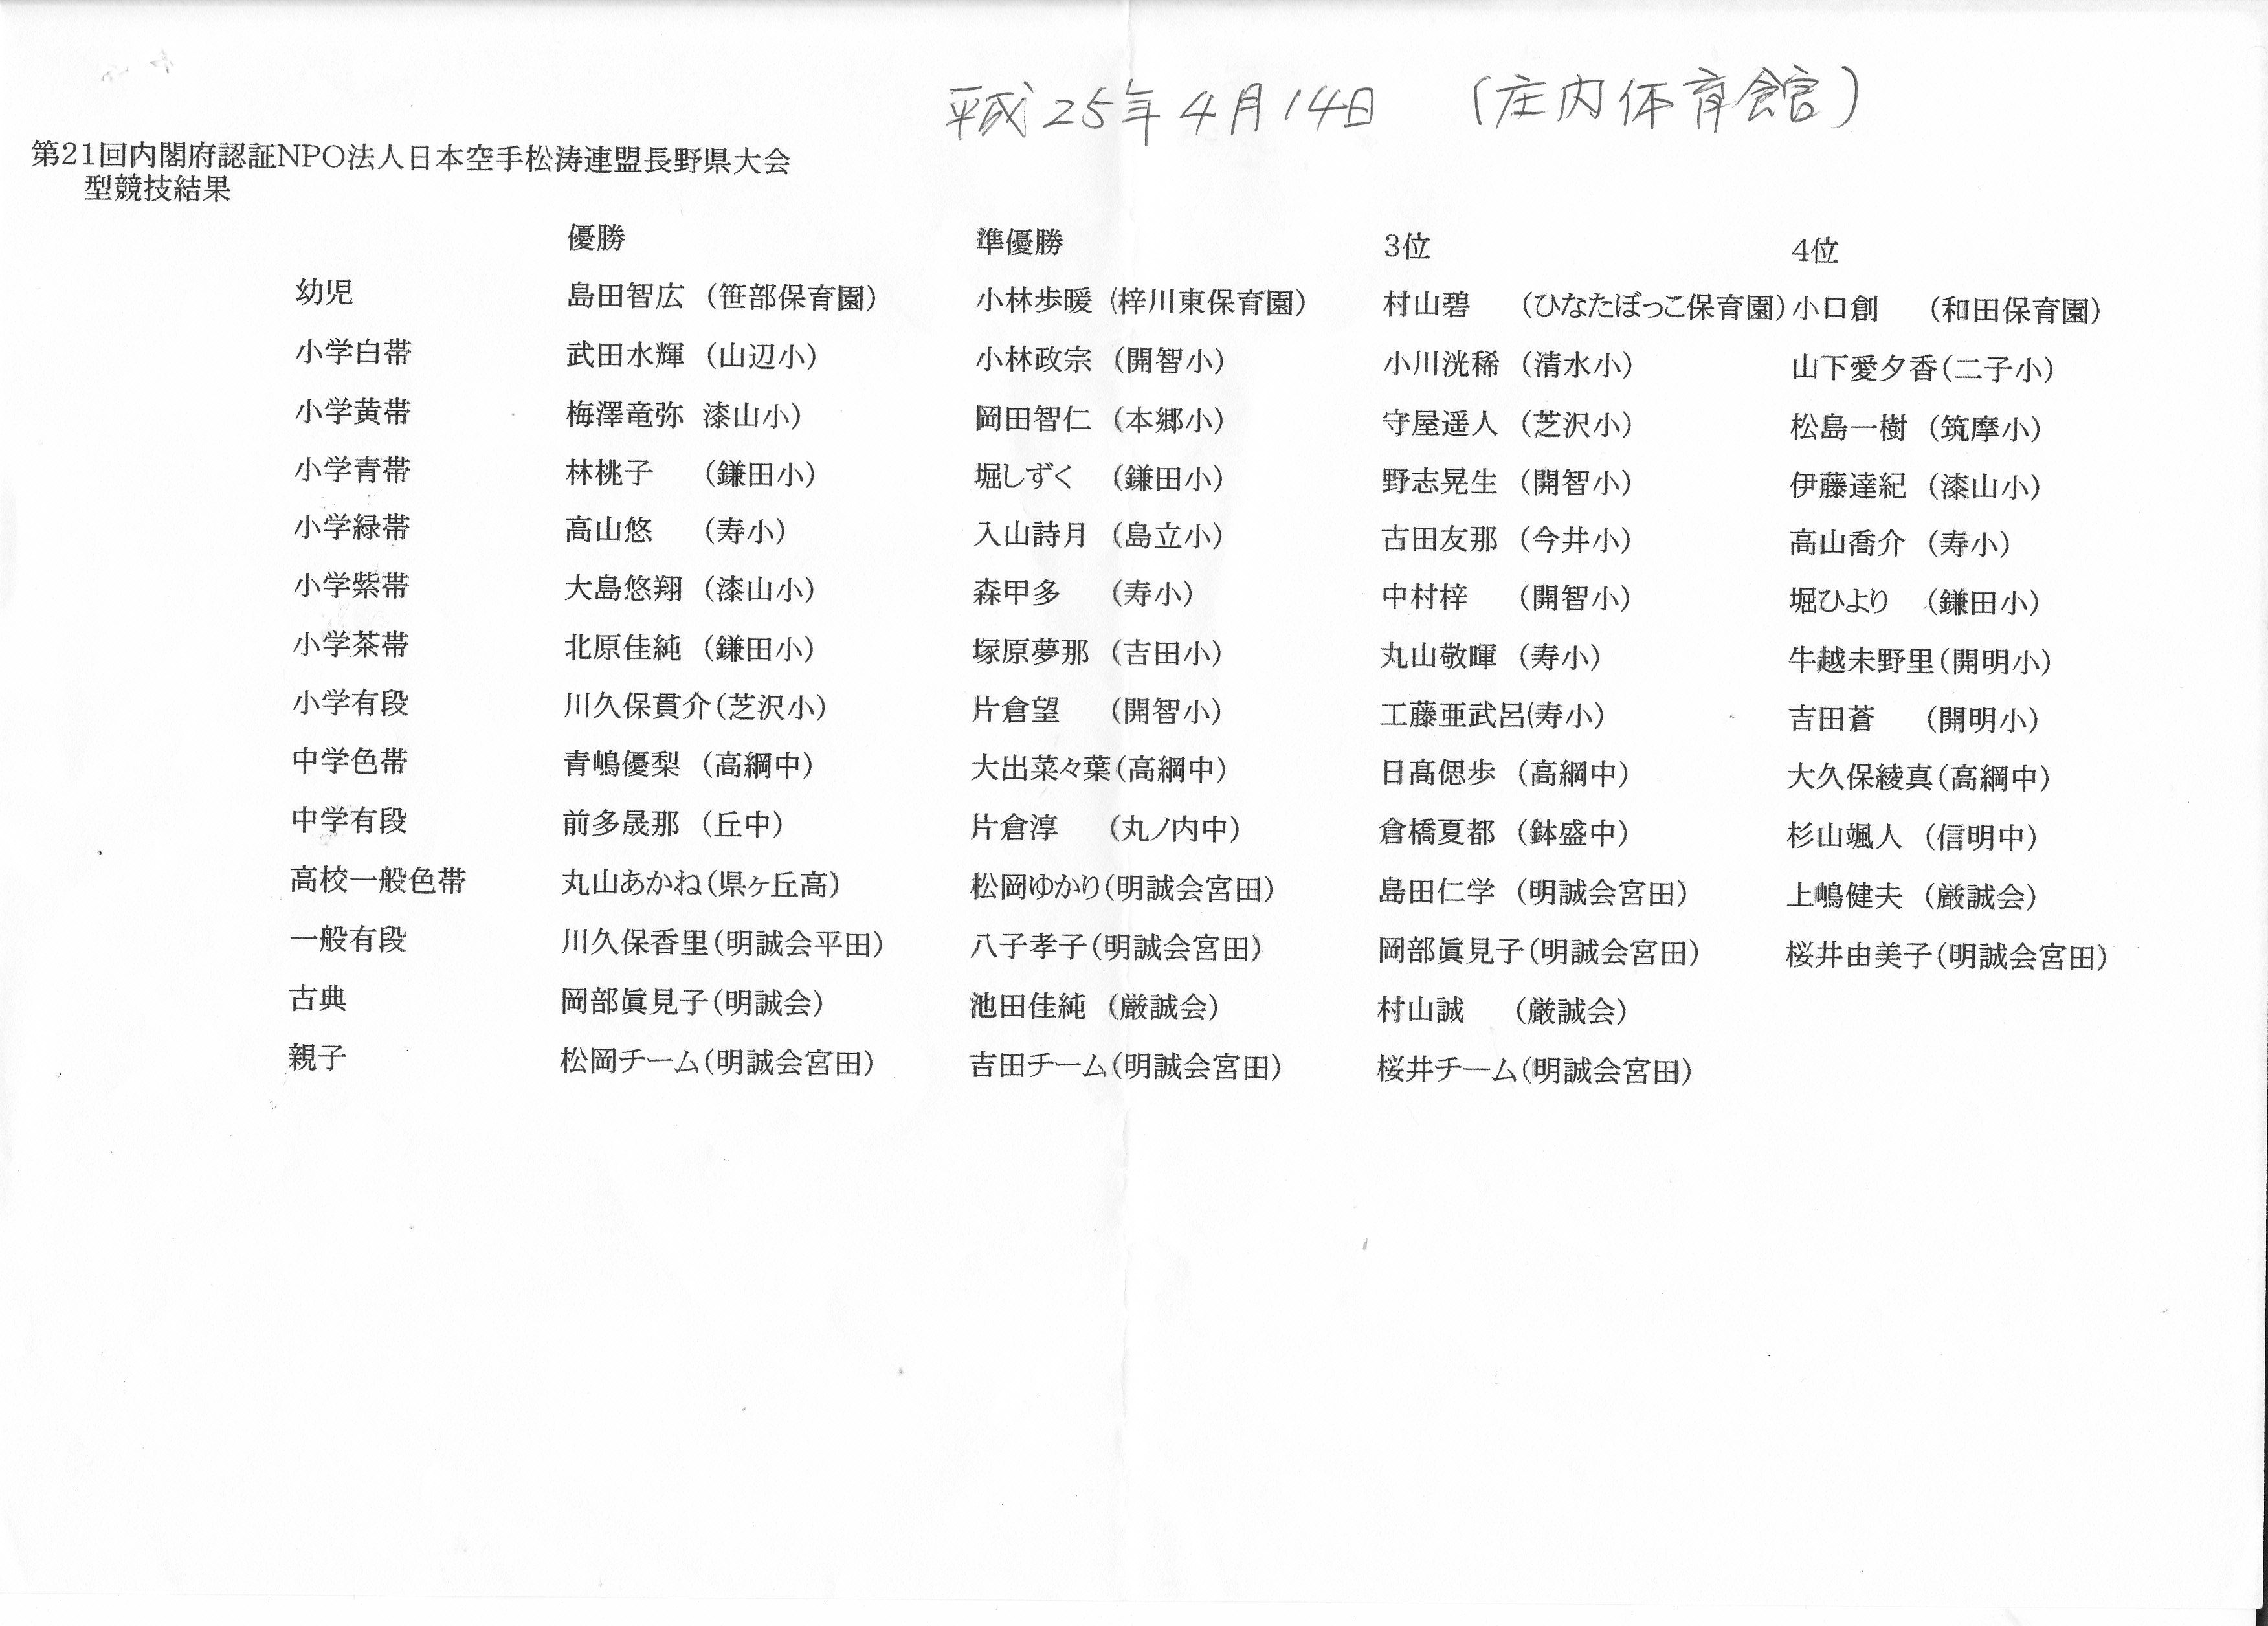 平成25年4月14日 (庄内体育館)
第21回内閣府認証NPO法人日本空手松涛連盟長野県大会
型競技結果
優勝 準優勝 3位 4位
幼児 島田智広 (笹部保育園) 小林歩暖 (梓川東保育園) 村山碧 (ひなたぼっこ保育園) 小口創 (和田保育園)
小学白帯 武田水輝 (山辺小) 小林政宗 (開智小) 小川洸稀 (清水小) 山下愛夕香(二子小)
小学黄帯 梅澤竜弥 漆山小) 岡田智仁 (本郷小) 守屋遥人 (芝沢小) 松島一樹 (筑摩小)
小学青帯 林桃子 (鎌田小) 堀しずく (鎌田小) 野志晃生 (開智小) 伊藤達紀 (漆山小)
小学緑帯 高山悠 (寿小) 入山詩月 (島立小) 古田友那 (今井小) 高山喬介 (寿小)
小学紫帯 大島悠翔 (漆山小) 森甲多 (寿小) 中村梓 (開智小) 堀ひより (鎌田小)
小学茶帯 北原佳純 (鎌田小) 塚原夢那 (吉田小) 丸山敬暉 (寿小) 牛越未野里(開明小)
小学有段 川久保貫介(芝沢小) 片倉望 (開智小) 工藤亜武呂(寿小) 吉田蒼 (開明小)
中学色帯 青嶋優梨 (高綱中) 大出菜々葉(高綱中) 日髙偲歩 (高綱中) 大久保綾真(高綱中)
中学有段 前多晟那 (丘中) 片倉淳 (丸ノ内中) 倉橋夏都 (鉢盛中) 杉山颯人 (信明中)
高校一般色帯 丸山あかね(県ヶ丘高) 松岡ゆかり(明誠会宮田) 島田仁学 (明誠会宮田) 上嶋健夫 (厳誠会)
一般有段 川久保香里(明誠会平田) 八子孝子(明誠会宮田) 岡部眞見子(明誠会宮田) 桜井由美子(明誠会宮田)
古典 岡部眞見子(明誠会) 池田佳純 (厳誠会) 村山誠 (厳誠会)
親子 松岡チーム(明誠会宮田) 吉田チーム(明誠会宮田) 桜井チーム(明誠会宮田)